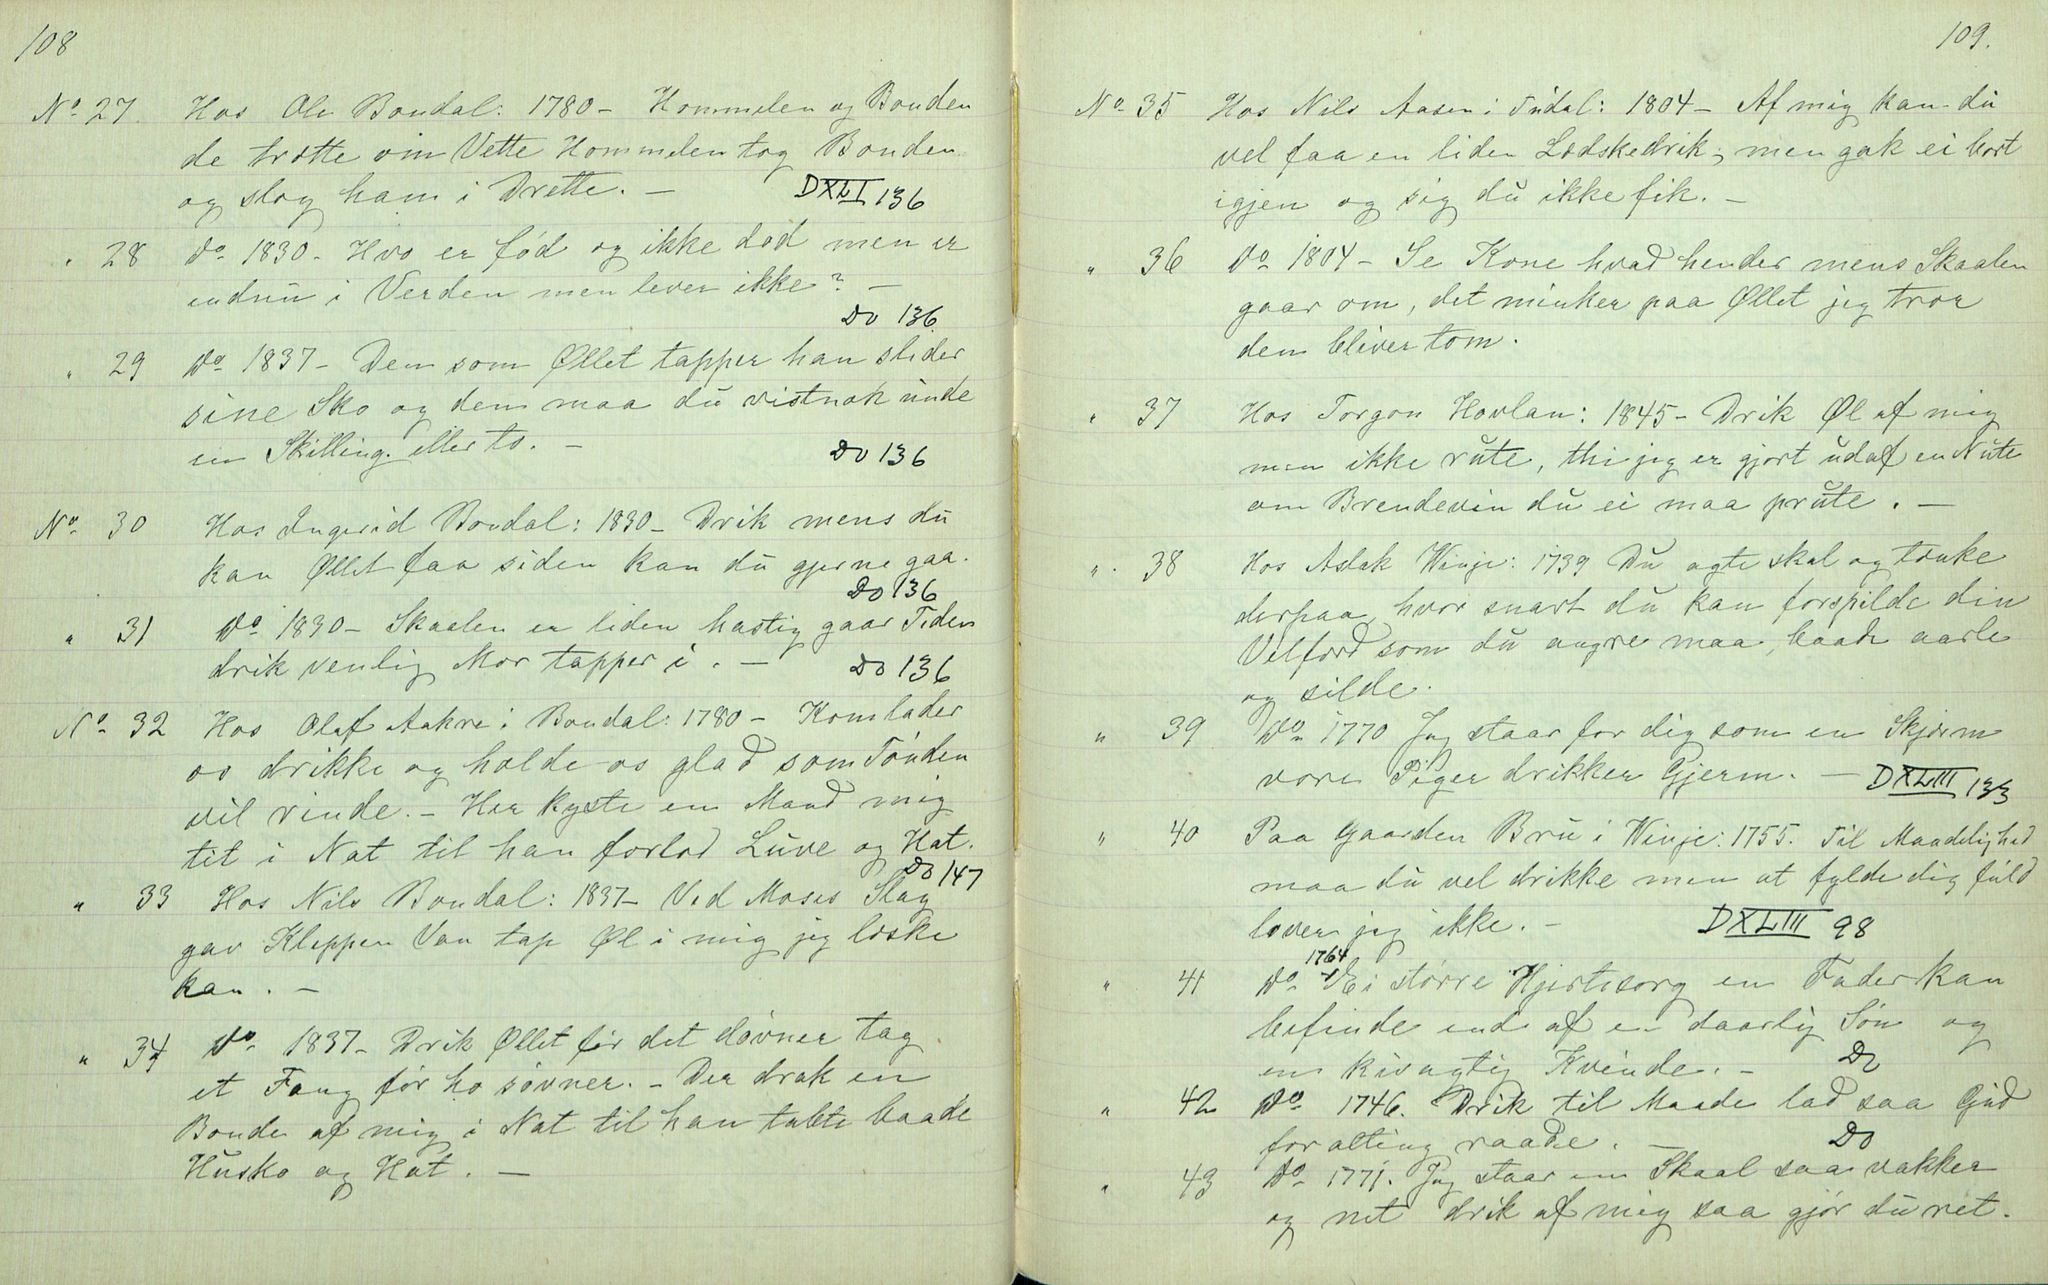 108
No 27. Hos Ole Bondal: 1780 - Hommelen og Bonden
de trette om Vette Hommelen tog Bonden
og slog ham i Drette. -
DXLI 136
" 28 do 1830 - Hvo er fød og ikke død men er
endnu i Verden men lever ikke? -
Do 136.
" 29 do 1837 - Den som Øllet tapper han slider
sine Sko og dem maa du vistnok unde
en Skilling eller to. -
Do 136
No 30 Hos Ingerid Bondal: 1830 - Drik mens du
kan Øllet faa siden kan du gjerne gaa.
Do 136
" 31 do 1830 - Skaalen er liden hastig gaar Tiden
drik venlig Mor tapper i. -
Do 136
No 32 Hos Olaf Aakre i Bondal: 1780 - Kom lader
os drikke og holde os glad som Tønden
vil rinde. - Her kyste en Mand mig
tit i Nat til han forlod Luve og Hat.
Do 147
" 33 Hos Nils Bondal: 1837 - Ved Moses Slag
gav Kleppen Van tap Øl i mig jeg læske
kan. -
" 34 do 1837 - Drik Øllet før det døvner tag
et Fang før ho søvner. - Der drak en
Bonde af mig i Nat til han tabte baade
Husko og Hat. -
109.
No 35 Hos Nils Aasen i Tudal: 1804 - Af mig kan du
vel faa en liden Lædskedrik, men gak ei bort
igjen og sig du ikke fik. -
" 36 do 1804 - Se Kone hvad hender mens Skaalen
gaar om, det minker paa Øllet jeg tror
den bliver tom.
" 37 Hos Torgon Hovlan: 1845 - Drik Øl af mig
men ikke rute, thi jeg er gjort udaf en Nute
om Brendevin du ei maa prute. -
" 38 Hos Aslak Winje: 1739 Du agte skal og tænke
derpaa, hvor snart du kan forspilde din
Velferd som du angre maa, baade aarle
og silde.
" 39 do 1770 Jeg staar for dig som en Skjerm
vore Piger drikker Gjerm. -
DXLIII 133
" 40 Paa Gaarden Bru i Winje: 1755. Til Maadelighed
maa du vel drikke men at fylde dig fuld
lover jeg ikke. -
DXLIII 98
1764
" 41 do - Ei større Hjertesorg en Fader kan
befinde end af en daarlig Søn og
en kivagtig Kvinde. -
Do
" 42 do 1746. Drik til Maade lad saa Gud
for alting raade. -
Do
" 43 do 1771. Jeg staar en Skaal saa vakker
og net drik af mig saa gjør du ret.